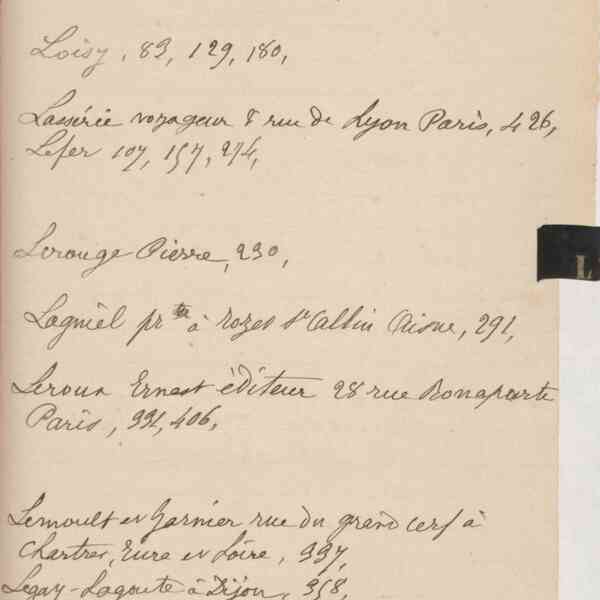 Loisy, 83, 129, 180,
Lassérie voyageur 8 rue de Lyon Paris, 426,
Lefer 107, 157, 274,
Lerouge Pierre, 230,
L
Lagnièl prte à rozes St Albin Aisne, 291,
Leroux Ernest éditeur 28 rue Bonaparte
Paris, 331, 406,
Lemoult et Garnier rue du grand cerf à
Chartres, Eure et Loire, 337,
Legay-Lagoute à Dijon, 358,